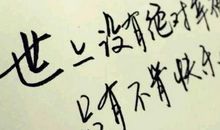 世上没有绝对幸
只有不肯快乐